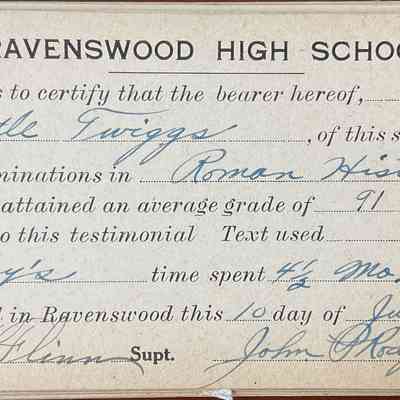 RAVENSWOOD HIGH SCHOO
s to certify that the bearer hereof,
tle Twiggs, of this s
minations in Roman His
attained an average grade of 91
o this testimonial Text used
y's time spent 4½ Mo.
d in Ravenswood this 10 day of Ju
Flinn Supt. John